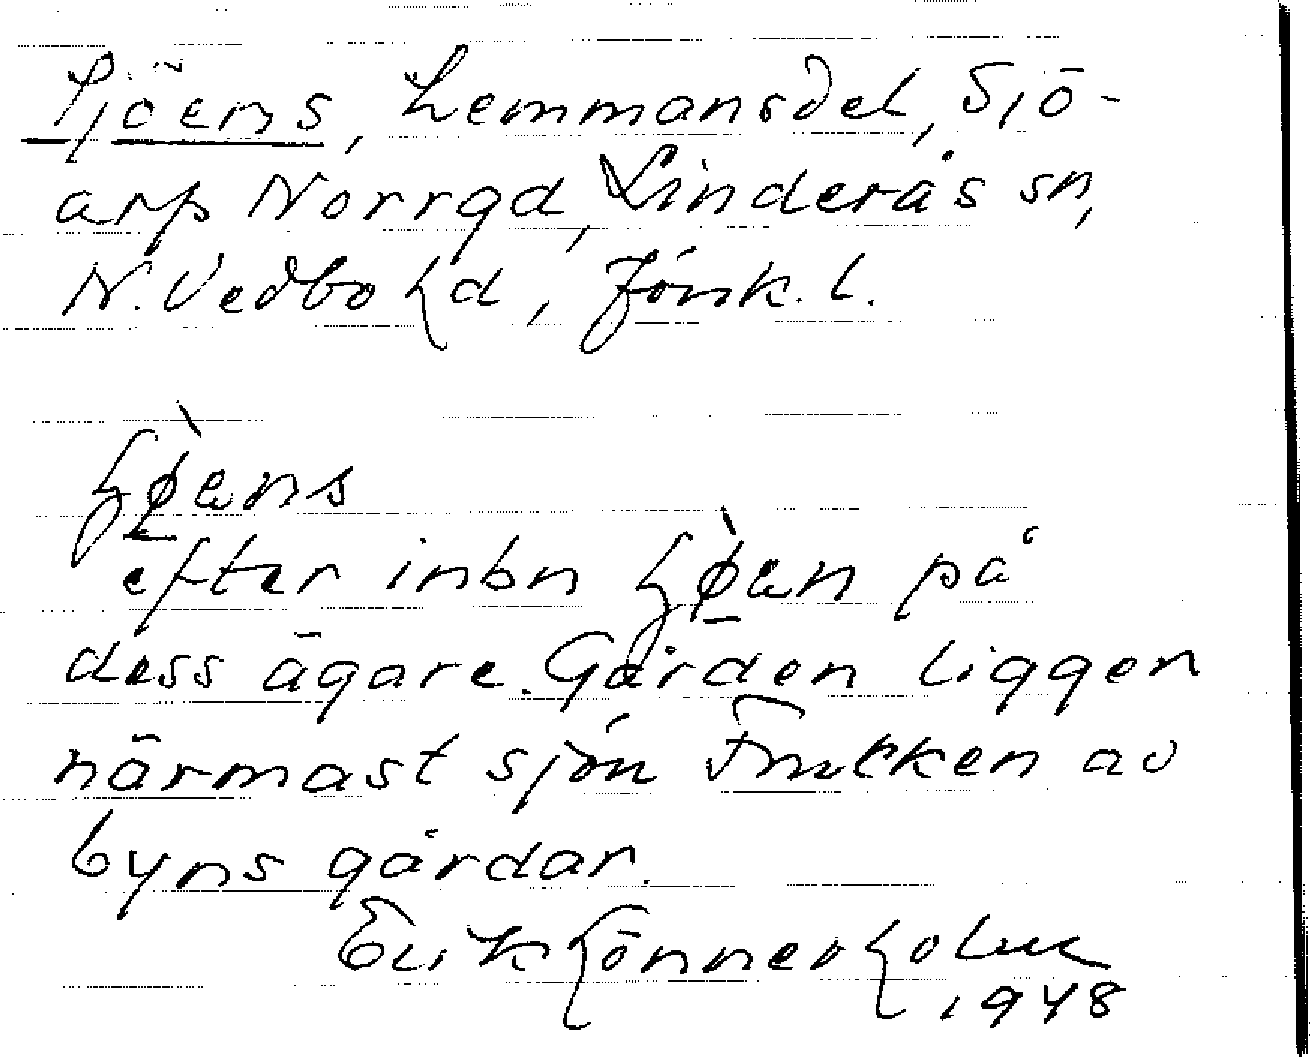 Sjöens, hemmansdel, Sjö-
arp Norrgd, Linderås sn,
N. Vedbo hd, Jönk. l.
efter inbn på
dess ägare. Gården ligger
närmast sjön av
byns gårdar.
Erik hönnerholm
1948